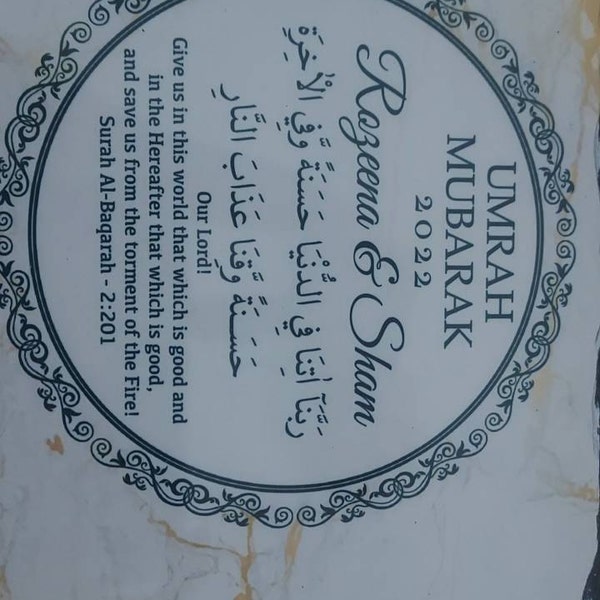 UMRAH
MUBARAK
2022
Rozeena & Sham
رَبَّنَآ اٰتِنَا فِي الدُّنْيَا حَسَنَةً وَّفِي الْاٰخِرَةِ
حَسَنَةً وَّقِنَا عَذَابَ النَّارِ
Our Lord!
Give us in this world that which is good and
in the Hereafter that which is good,
and save us from the torment of the Fire!
Surah Al-Baqarah - 2:201